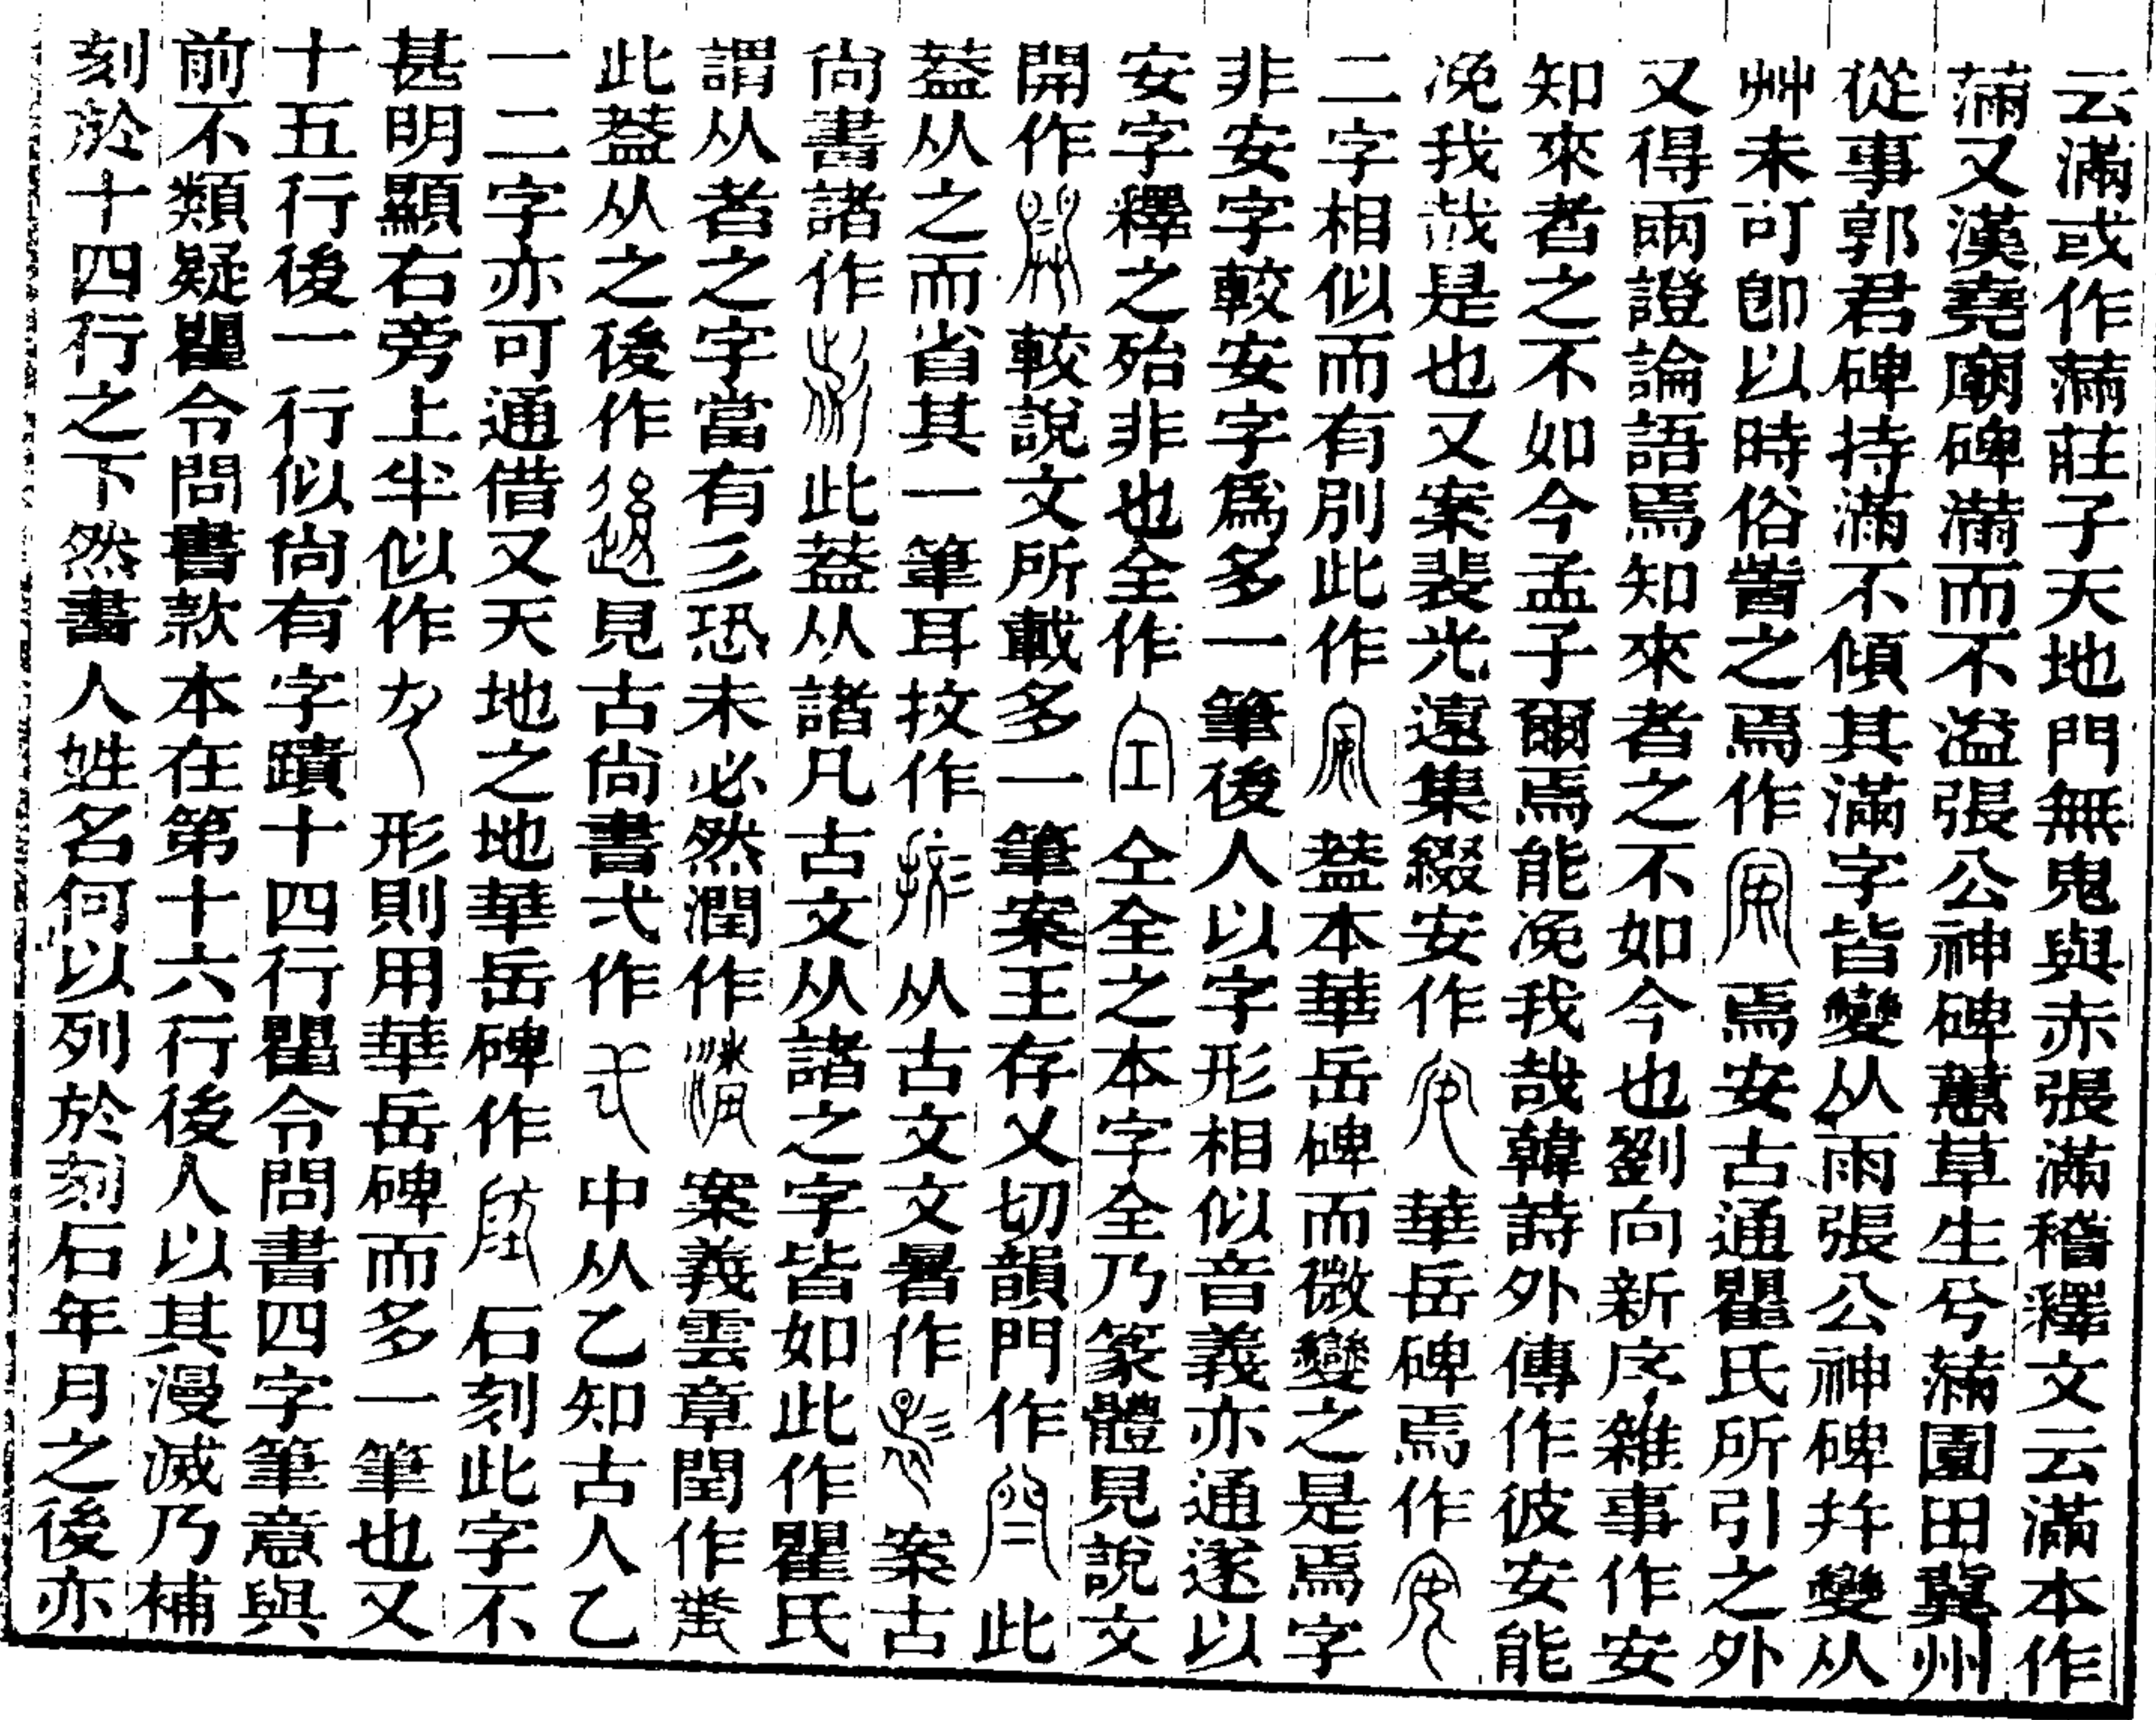 云滿或作䔽莊子天地門無鬼與赤張滿稽釋文云滿本作
䔽又漢堯廟碑滿而不溢張公神碑蕙草生兮䔽園田冀州
從事郭君碑持滿不傾其滿字皆變从雨張公神碑幷變从
艸未可卽以時俗訾之焉作焉安古通瞿氏所引之外
又得兩證論語焉知來者之不如今也劉向新序雜事作安
知來者之不如今孟子爾焉能浼我哉韓詩外傳作彼安能
浼我哉是也又案裴光遠集綴安作華岳碑焉作
二字相似而有別此作蓋本華岳碑而微變之是焉字
非安字較安字爲多一筆後人以字形相似音義亦通遂以
安字釋之殆非也全作仝全之本字全乃篆體見說文
開作較說文所載多一筆案王存乂切韻門作此
葢从之而省其一筆耳抆作从古文文暑作案古
尙書諸作此葢从諸凡古文从諸之字皆如此作瞿氏
謂从者之字當有彡恐未必然潤作案義雲章閏作
此葢从之後作見古尙書弌作中从乙知古人乙
一二字亦可通借又天地之地華岳碑作石刻此字不
甚明顯右旁上半似作形則用華岳碑而多一筆也又
十五行後一行似尙有字蹟十四行瞿令問書四字筆意與
前不類疑瞿令問書款本在第十六行後人以其漫滅乃補
刻於十四行之下然書人姓名何以列於刻石年月之後亦